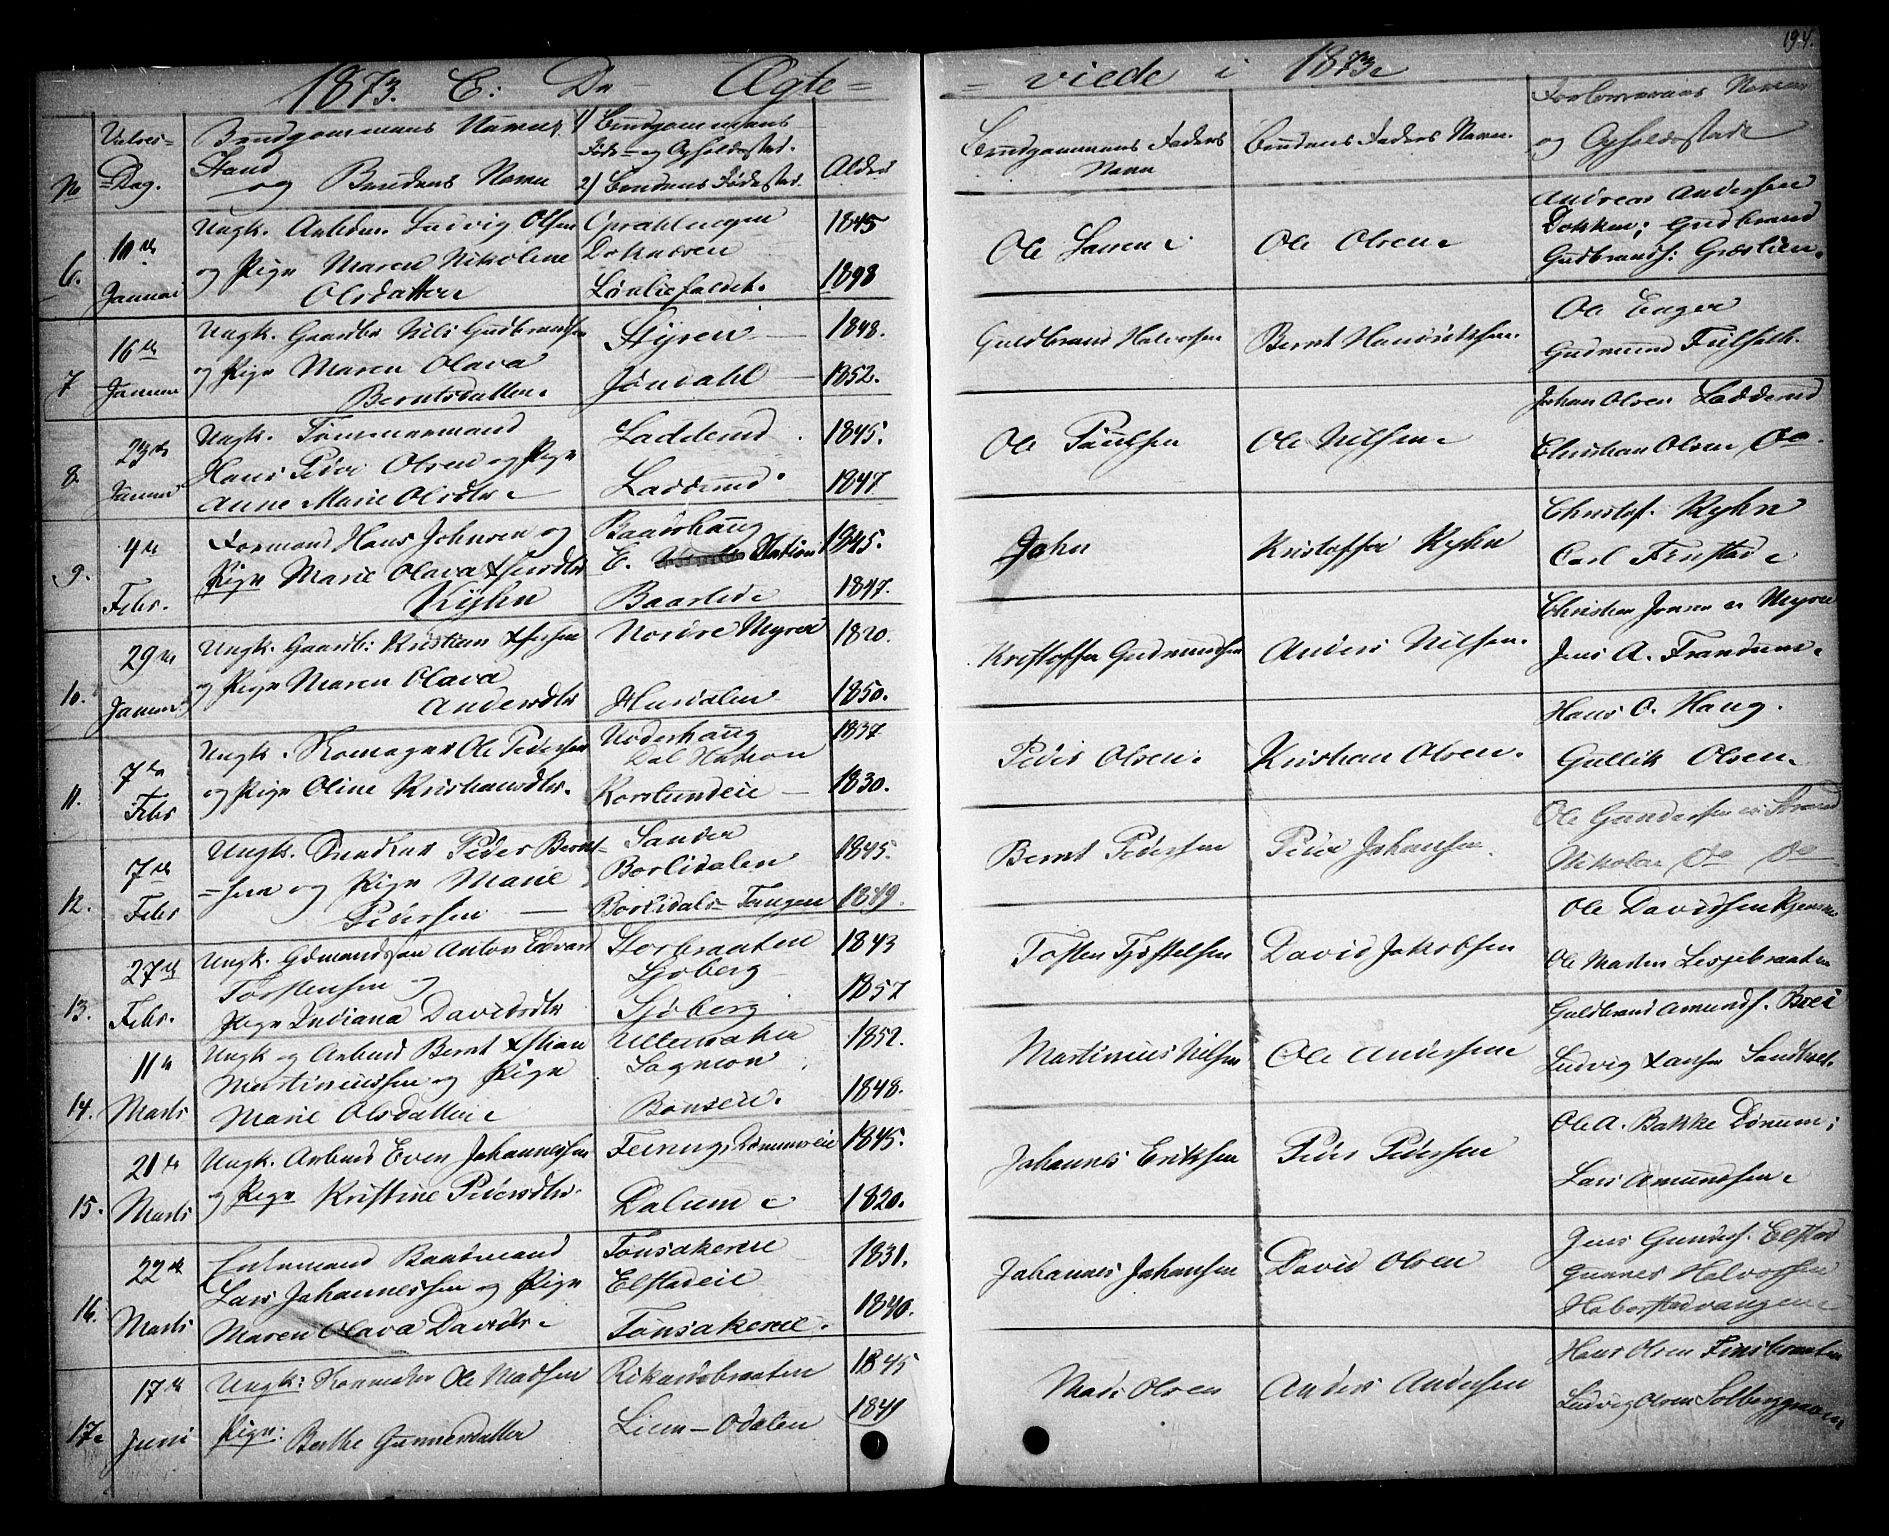 194.
1873. C: De Ægte=
= viede i 1873
No
Vielses=
=Dag.
Brudgommens Navn,
Stand
og Brudens Navn
1) Brudgommens
Føde= og Opholdssted.
2) Brudens Fødested.
Alder
Brudgommens Faders
Navn
Brudens Faders Navn.
Forlovernes Navne
og Opholdssteder
6.
10de
Januar
Ungk. Ludvig Olsen
og Pige Maren Nikoline
Olsdatter
1845
1848
Ole
Ole Olsen
Andreas Andersen
Dokken; Gudbrand
Gudbrands:
7
16de
Januar
Ungk. Gaardbr Nils Gudbrandsen
og Pige Maren Olava
Berntsdatter
Styren
Jøndahl
1848.
1852.
Guldbrand Halvorsen
Bernt Hendriksen.
Ole Enger
Gudmund
8.
23de
Januar
Ungk. Tømmermand
Hans Peder Olsen og Pige
Anne Marie Olsdtr
Ladderud
Ladderud
1845.
1847
Ole Paulsen
Ole Nilsen
Johan Olsen Ladderud
Christian Olsen Do
9.
4de
Febr.
Formand Hans Johnsen og
Pige Marie Olava
Kyhn
Baarshaug
E. Station
Baarlid
1845.
1847.
John
Kristoffer Kyhn
Christof. Kyhn
Carl Finstad
10.
29de
Januar
Ungk. Gaardb: Kristian
og Pige Maren Olava
Andersdtr
Nordre Myrer
Husdalen
1820.
1850.
Kristoffer Gudmundsen
Anders Nilsen.
Christian Jonsen Myrer
Jens A. Frandum.
11.
7de
Febr
Ungk. Skomager Ole Pedersen
og Pige Oline Kristiansdtr.
Nederhaug
Dal Station
1837
1830.
Peder Olsen.
Kristian Olsen.
Hans O. Haug.
Gullik Olsen
12.
7de
Febr
Ungk. Snedker Peder Bernt=
=sen og Pige Marie
Pedersen
Sander
Borlidalen
Borlidals= Tangen
1845.
1849.
Bernt Pedersen
Peder Johansen.
Ole Gundersen Strand
Nikolai Do Do
13.
27de
Febr.
Ungk. Gdmandssøn Anton Edvart
Torstensen og
Pige Indiana Davidsdtr
Storbraaten
Sjøberg
Sjøberg
1843
1857
Tosten Tjøstelsen
David Jakobsen
Ole Davidsen
Ole Martin
14.
11te
Marts
Ungk og Arbmd Bernt
Martiniussen og Pige
Marie Olsdatter
Ullensaker
Sogmoen
1852.
1848.
Martinius Nilsen
Ole Andersen
Guldbrand Amunds.
Ludvig Larsen
15.
21de
Marts
Ungk. Arbmd Even Johannessen
og Pige Kristine Pedersdtr.
Feiring,
Dalum
1845.
1820.
Johannes Eriksen
Peder Pedersen
Ole A. Bakke Dønum;
Lars Amundsen
16.
22de
Marts
Enkemand Baadmand
Lars Johannessen og Pige
Maren Olava Davidsdtr
Tonsakereie
Elstadeie
Tonsakereie.
1831.
1840.
Johannes Johansen
David Olsen
Jens Gunders. Elstad
Gunnes Halvorsen
Haberstadvangen
17
17de
Juni
Ungk: Ole Madsen
Pige: Berthe Gunnersdatter
Rikardsbraaten
Lien= Odalen
1845
1841
Mads Olsen
Anders Andersen
Hans Olsen Finsbraaten
Ludvig Olsen